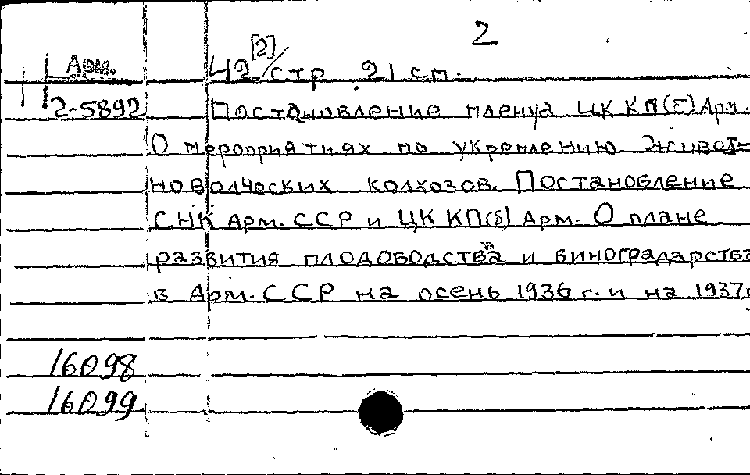 2
Арм. 42 [2]/ стр. 21 см.
2-5892 Постановление пленума ЦК КП(б) Арм.
О мероприятиях по укреплению живот-
новодческих колхозов. Постановление
СНК Арм. ССР и ЦК КП(б) Арм. О плане
развития плодоводства и виноградарства
в Арм. ССР на осень 1936 г. и на 1937г
16098
16099